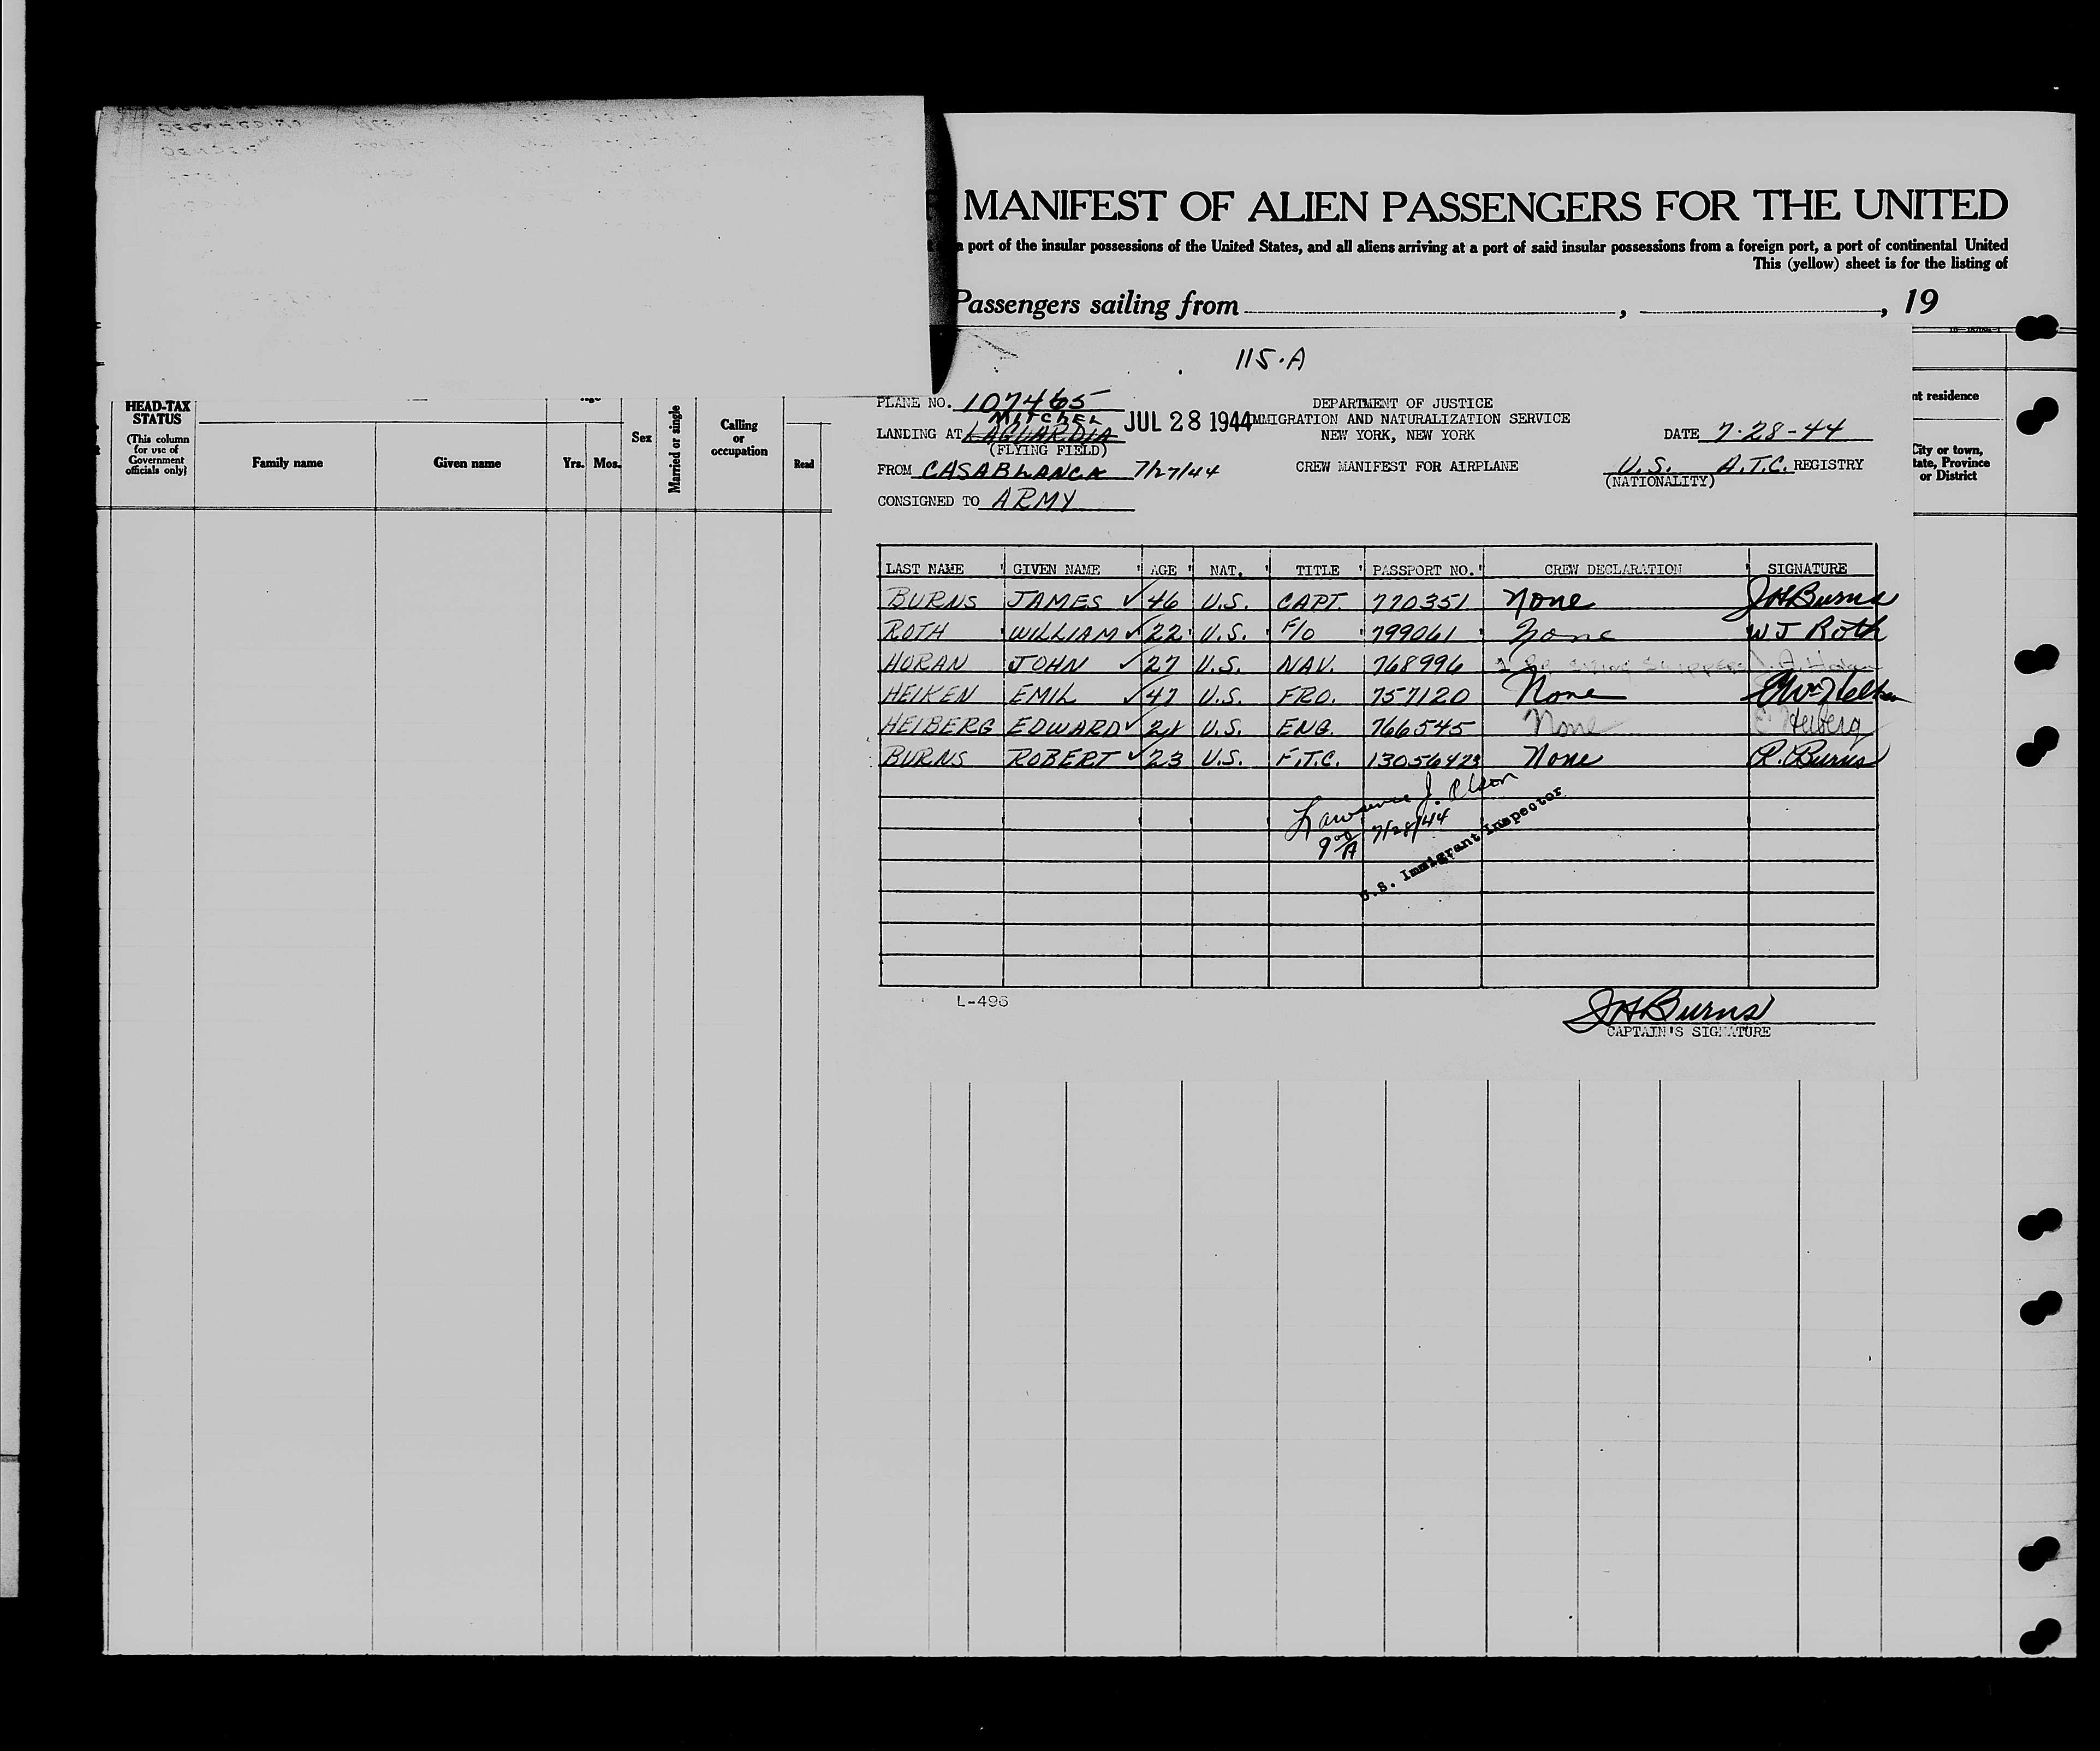 MANIFEST OF ALIEN PASSENGERS FOR THE UNITED
a port of the insular possessions of the United States, and all aliens arriving at a port of said insular possessions from a foreign port, a port of continental United
This (yellow) sheet is for the listing of
Passengers sailing from , , 19
115-A
PLANE NO. 107465
DEPARTMENT OF JUSTICE
MITCHEL
JUL 28 1944
IMMIGRATION AND NATURALIZATION SERVICE
LANDING AT LAGUARDIA
NEW YORK, NEW YORK
DATE 7-28-44
(FLYING FIELD)
FROM CASABLANCA 7/27/44
CREW MANIFEST FOR AIRPLANE
U.S. A.T.C. REGISTRY
(NATIONALITY)
CONSIGNED TO ARMY
LAST NAME GIVEN NAME AGE NAT. TITLE PASSPORT NO. CREW DECLARATION SIGNATURE
BURNS JAMES ✓ 46 U.S. CAPT. 770351 None JHBurns
ROTH WILLIAM ✓ 22 U.S. F/O 799061 None W J Roth
HORAN JOHN ✓ 27 U.S. NAV. 768996 J. A. Horan
HEIKEN EMIL ✓ 47 U.S. FRO. 757120 None
HEIBERG EDWARD ✓ U.S. ENG. 766545 None E Heiberg
BURNS ROBERT ✓ 23 U.S. F.T.C. 13056423 None R. Burns
Lawrence J. Olson
9 00 A 7/28/44
U.S. Immigrant Inspector
L-496
JHBurns
CAPTAIN'S SIGNATURE
HEAD-TAX
STATUS
(This column
for use of
Government
officials only)
Family name
Given name
Yrs. Mos.
Sex
Married or single
Calling
or
occupation
Read
nt residence
City or town,
tate, Province
or District